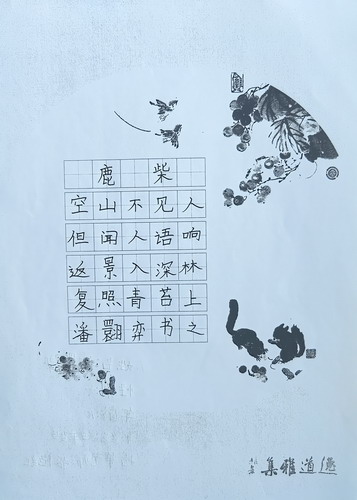 鹿柴
空山不见人
但闻人语响
返景入深林
复照青苔上
潘翾弈书之
道雅集